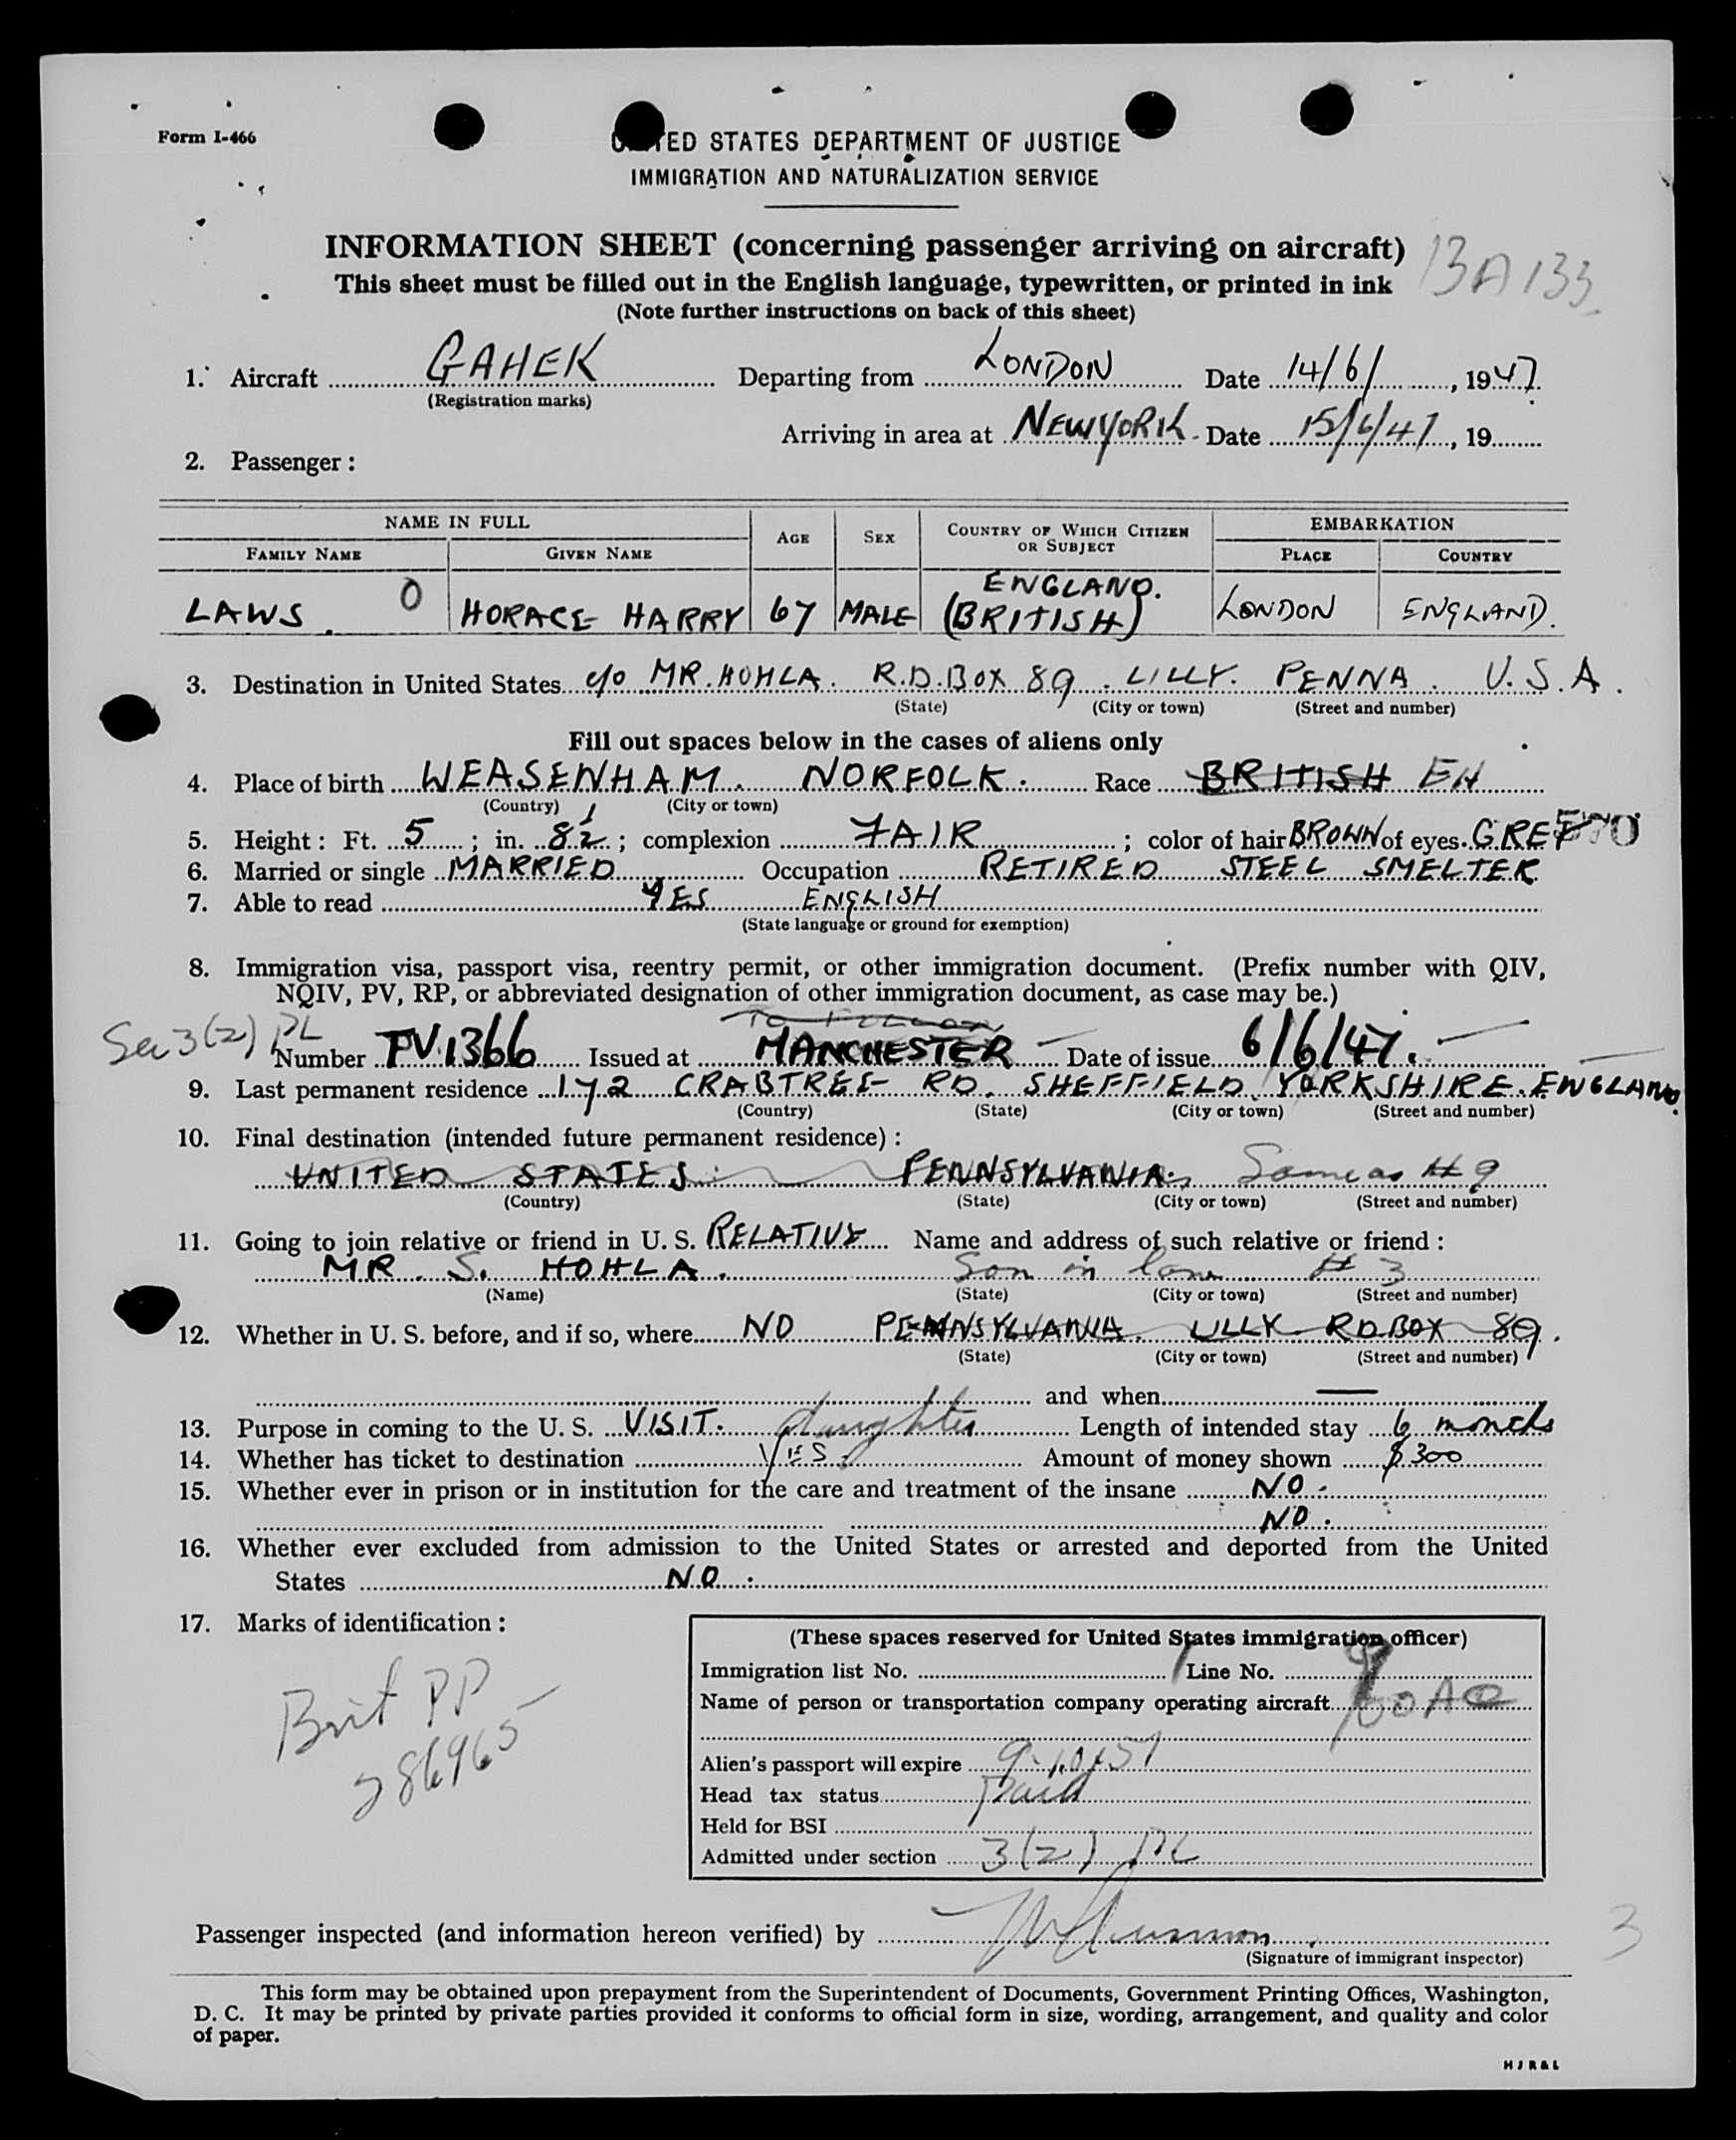 Form I-466
UNITED STATES DEPARTMENT OF JUSTICE
IMMIGRATION AND NATURALIZATION SERVICE
INFORMATION SHEET (concerning passenger arriving on aircraft)
BA 133
This sheet must be filled out in the English language, typewritten, or printed in ink
(Note further instructions on back of this sheet)
1. Aircraft GAHEK Departing from LONDON Date 14/6/, 1947
(Registration marks)
Arriving in area at NEW YORK. Date 15/6/47, 19
2. Passenger:
NAME IN FULL AGE SEX COUNTRY OF WHICH CITIZEN OR SUBJECT EMBARKATION
FAMILY NAME GIVEN NAME PLACE COUNTRY
LAWS. 0 HORACE HARRY 67 MALE ENGLAND. (BRITISH) LONDON ENGLAND.
3. Destination in United States c/o MR. HOHLA. R.D. BOX 89. LILLY. PENNA. U.S.A.
(State) (City or town) (Street and number)
Fill out spaces below in the cases of aliens only
4. Place of birth WEASENHAM. NORFOLK. Race BRITISH EN
(Country) (City or town)
5. Height: Ft. 5; in. 8½; complexion FAIR; color of hair BROWN of eyes. GREY
6. Married or single MARRIED Occupation RETIRED STEEL SMELTER
7. Able to read YES ENGLISH
(State language or ground for exemption)
8. Immigration visa, passport visa, reentry permit, or other immigration document. (Prefix number with QIV,
NQIV, PV, RP, or abbreviated designation of other immigration document, as case may be.)
TO FOLLOW
Sec 3(2) PL
Number PV.1366 Issued at MANCHESTER Date of issue 6/6/47.
9. Last permanent residence 172 CRABTREE RD. SHEFFIELD YORKSHIRE. ENGLAND.
(Country) (State) (City or town) (Street and number)
10. Final destination (intended future permanent residence):
UNITED STATES. PENNSYLVANIA. Same as # 9
(Country) (State) (City or town) (Street and number)
11. Going to join relative or friend in U. S. RELATIVE Name and address of such relative or friend:
MR. S. HOHLA. Son in law # 3
(Name) (State) (City or town) (Street and number)
12. Whether in U. S. before, and if so, where NO PENNSYLVANIA. LILLY R.D. BOX 89.
(State) (City or town) (Street and number)
and when —
13. Purpose in coming to the U. S. VISIT. daughter Length of intended stay 6 months
14. Whether has ticket to destination YES Amount of money shown $300
15. Whether ever in prison or in institution for the care and treatment of the insane NO.
NO.
16. Whether ever excluded from admission to the United States or arrested and deported from the United
States NO.
17. Marks of identification:
Brit PP
286965
(These spaces reserved for United States immigration officer)
Immigration list No. 1 Line No. 9
Name of person or transportation company operating aircraft BOAC
Alien's passport will expire 9-10-51
Head tax status Paid
Held for BSI
Admitted under section 3(2) PL
Passenger inspected (and information hereon verified) by
(Signature of immigrant inspector)
3
This form may be obtained upon prepayment from the Superintendent of Documents, Government Printing Offices, Washington,
D. C. It may be printed by private parties provided it conforms to official form in size, wording, arrangement, and quality and color
of paper.
HJR&L